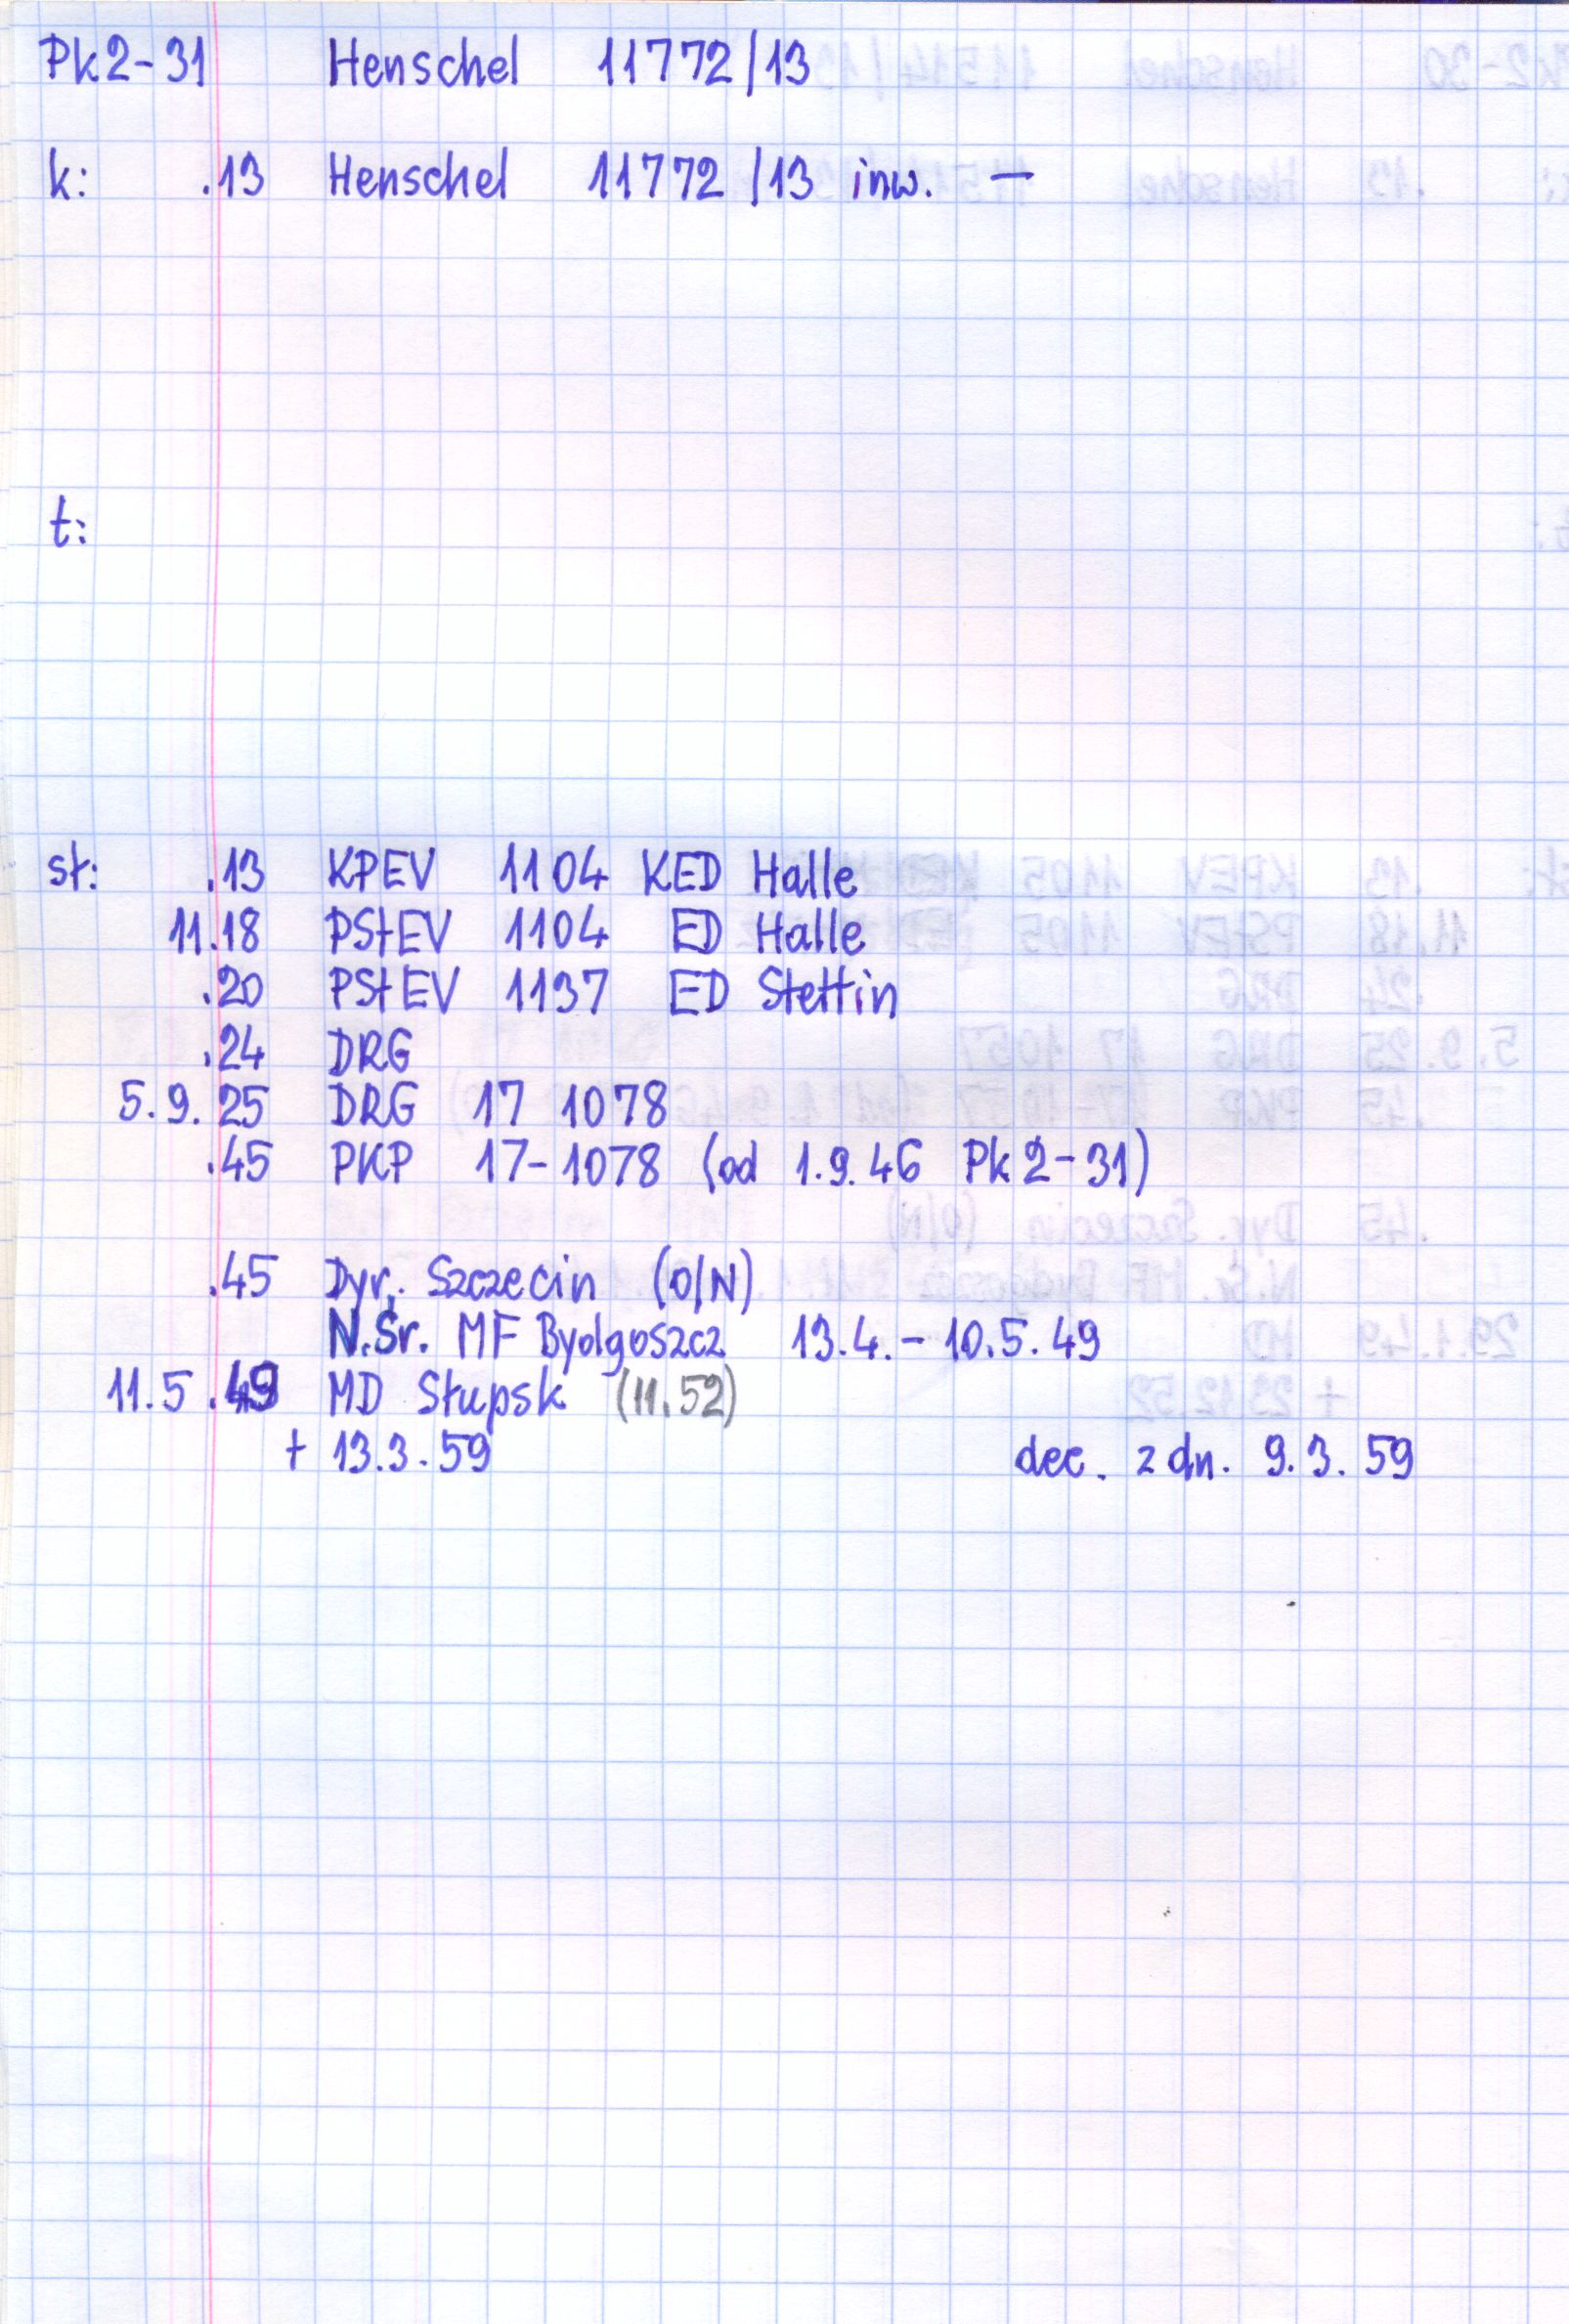 Pk2-31 Henschel 11772/13
k: .13 Henschel 11772/13 inw. —
t:
st: .13 KPEV 1104 KED Halle
11.18 PStEV 1104 ED Halle
.20 PStEV 1137 ED Stettin
.24 DRG
5.9.25 DRG 17 1078
.45 PKP 17-1078 (od 1.9.46 Pk2-31)
.45 Dyr. Szczecin (O/N)
N.Śr. MF Bydgoszcz 13.4.-10.5.49
11.5.49 MD Słupsk (11.52)
+ 13.3.59 dec. z dn. 9.3.59